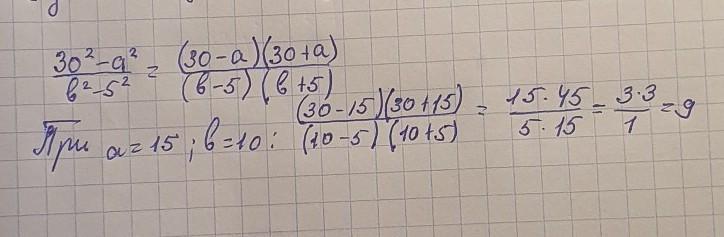 (30² - a²)/(в² - 5²) = ((30 - a)(30 + a))/((в - 5)(в + 5))
При a = 15; в = 10: ((30 - 15)(30 + 15))/((10 - 5)(10 + 5)) = (15 · 45)/(5 · 15) = (3 · 3)/1 = 9